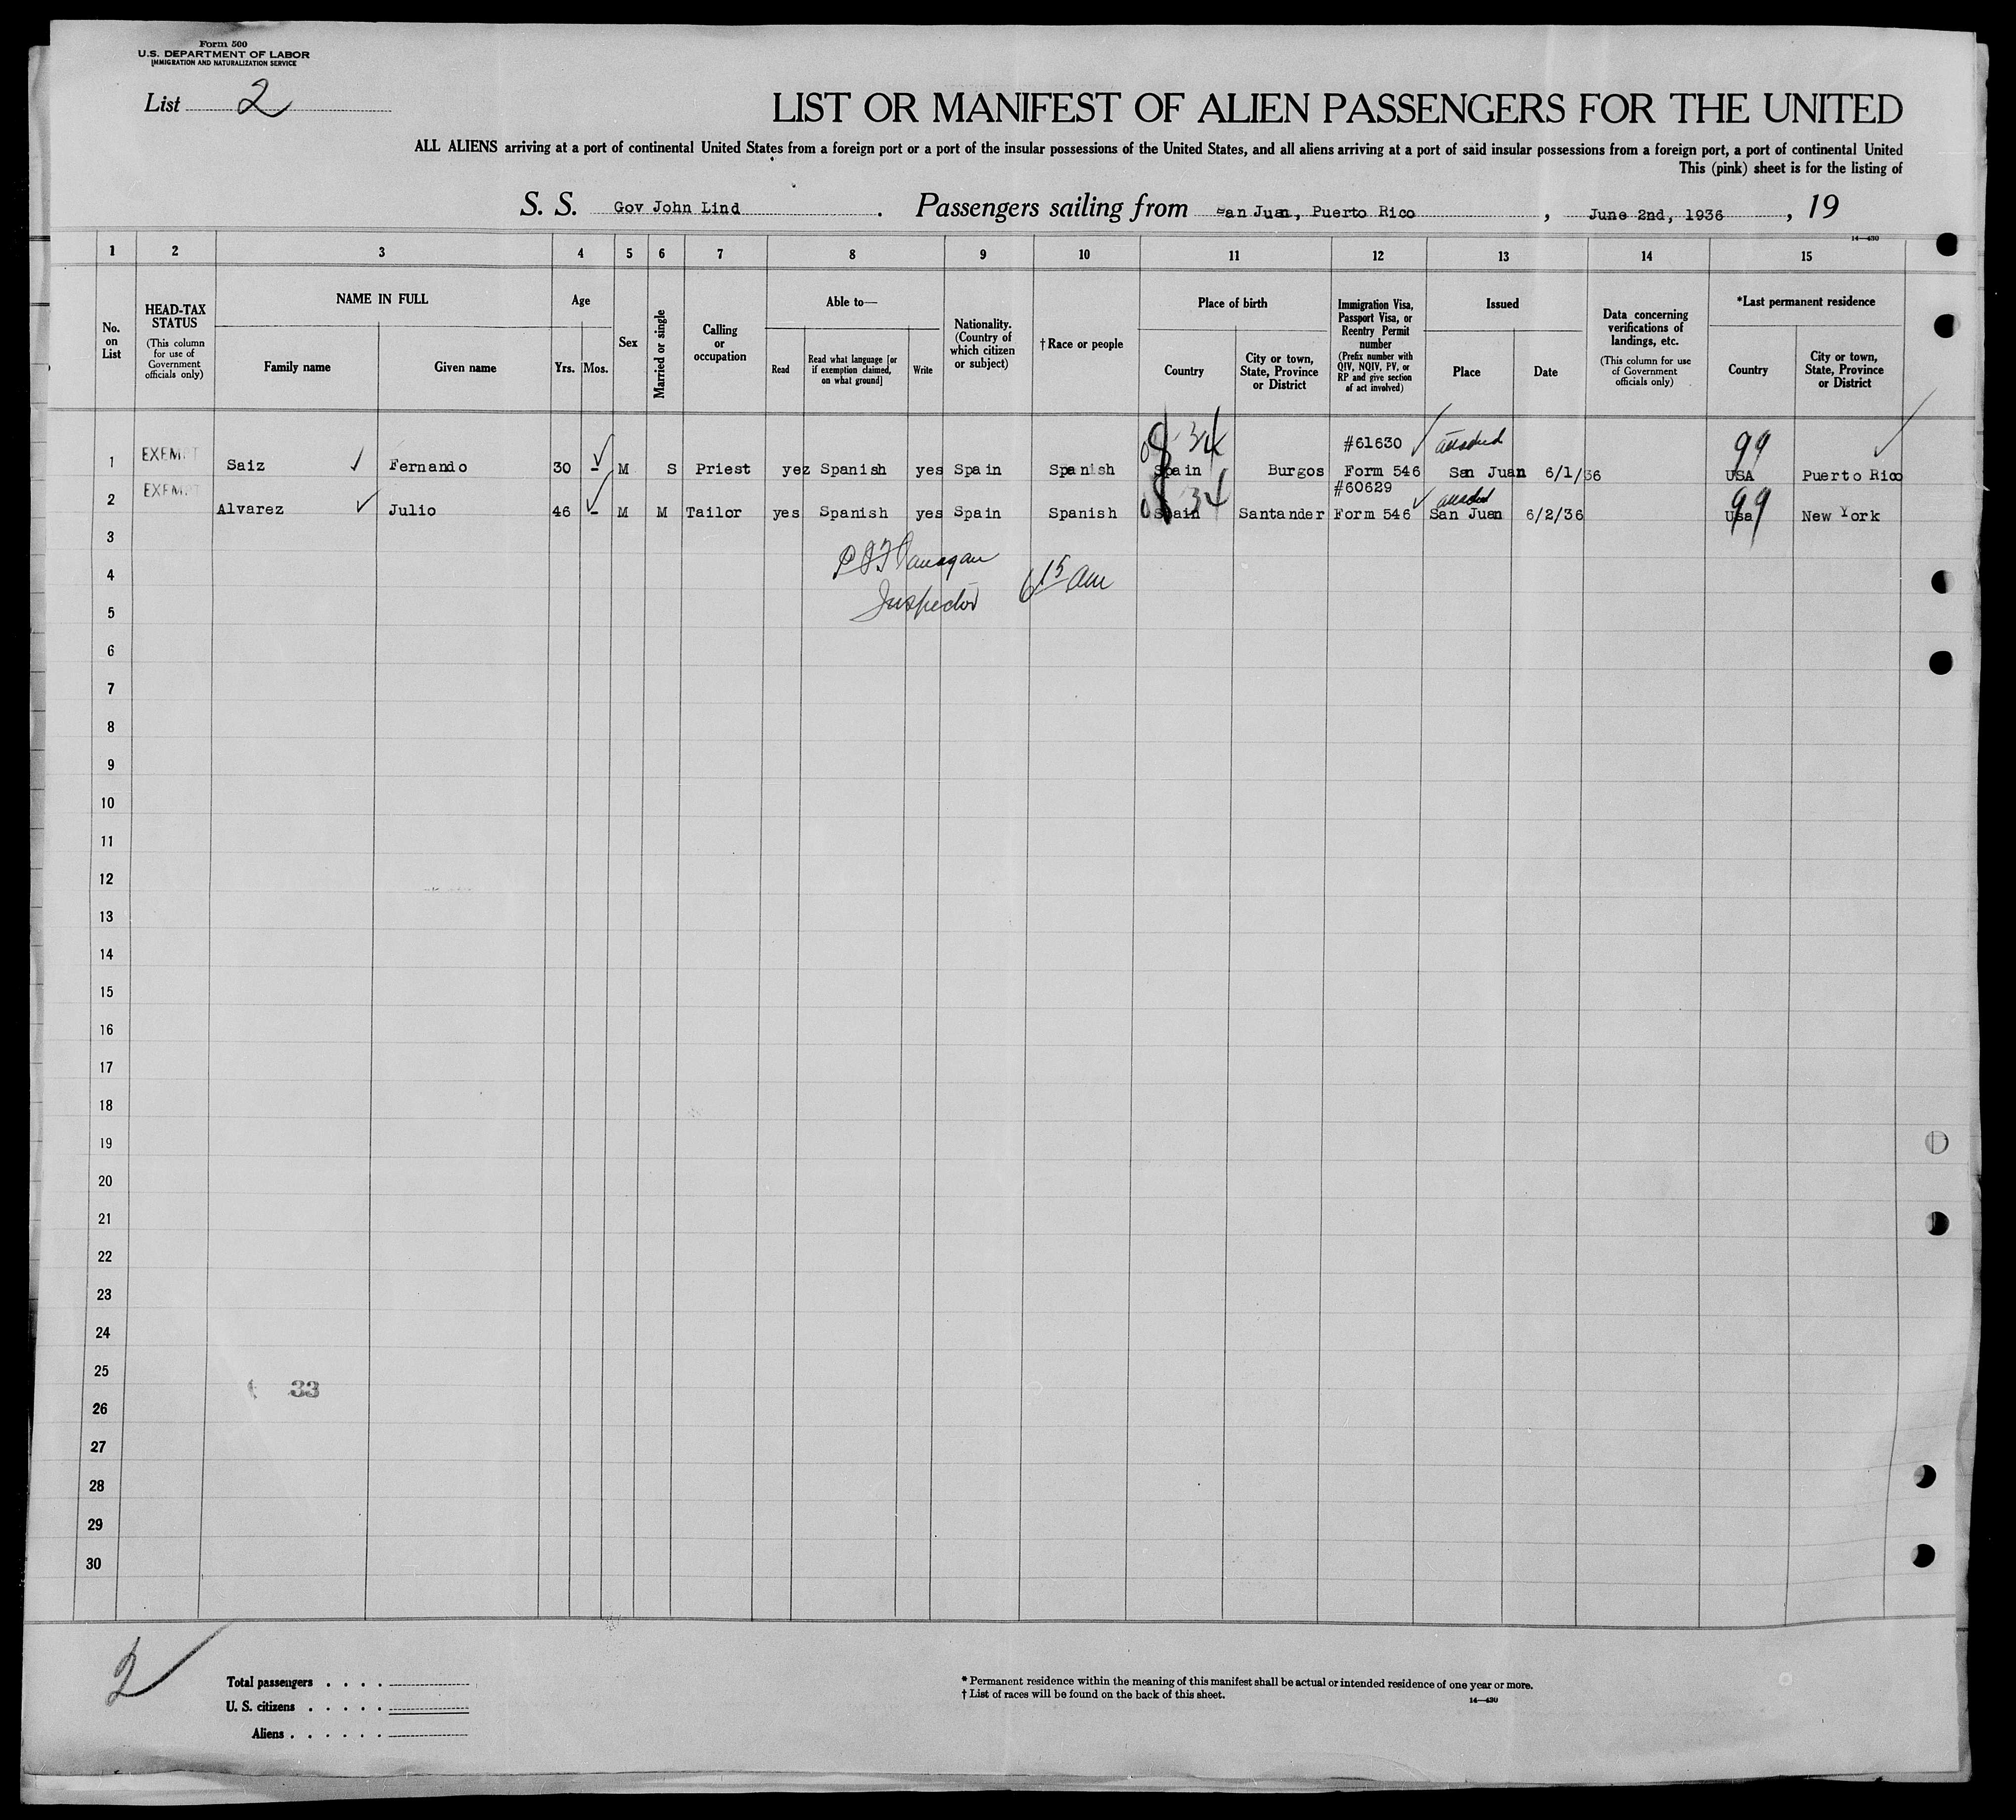 Form 500
U.S. DEPARTMENT OF LABOR
IMMIGRATION AND NATURALIZATION SERVICE
List 2
LIST OR MANIFEST OF ALIEN PASSENGERS FOR THE UNITED
ALL ALIENS arriving at a port of continental United States from a foreign port or a port of the insular possessions of the United States, and all aliens arriving at a port of said insular possessions from a foreign port, a port of continental United
This (pink) sheet is for the listing of
S. S. Gov John Lind . Passengers sailing from San Juan, Puerto Rico , June 2nd, 1936 , 19
14—430
1 2 3 4 5 6 7 8 9 10 11 12 13 14 15
No. on List
HEAD-TAX STATUS
(This column for use of Government officials only)
NAME IN FULL
Family name
Given name
Age
Yrs.
Mos.
Sex
Married or single
Calling or occupation
Able to—
Read
Read what language [or if exemption claimed, on what ground]
Write
Nationality. (Country of which citizen or subject)
† Race or people
Place of birth
Country
City or town, State, Province or District
Immigration Visa, Passport Visa, or Reentry Permit number
(Prefix number with QIV, NQIV, PV, or RP and give section of act involved)
Issued
Place
Date
Data concerning verifications of landings, etc.
(This column for use of Government officials only)
*Last permanent residence
Country
City or town, State, Province or District
34 #61630 99
1 EXEMPT Saiz Fernando 30 - M S Priest yez Spanish yes Spain Spanish Spain Burgos Form 546 San Juan 6/1/36 USA Puerto Rico
34 #60629 99
2 EXEMPT Alvarez Julio 46 - M M Tailor yes Spanish yes Spain Spanish Spain Santander Form 546 San Juan 6/2/36 Usa New York
3
Flanagan
4
6 15 am
Inspector
5
6
7
8
9
10
11
12
13
14
15
16
17
18
19
20
21
22
23
24
25
33
26
27
28
29
30
2
Total passengers . . . .
U. S. citizens . . . . .
Aliens . . . . . .
* Permanent residence within the meaning of this manifest shall be actual or intended residence of one year or more.
† List of races will be found on the back of this sheet.
14—430